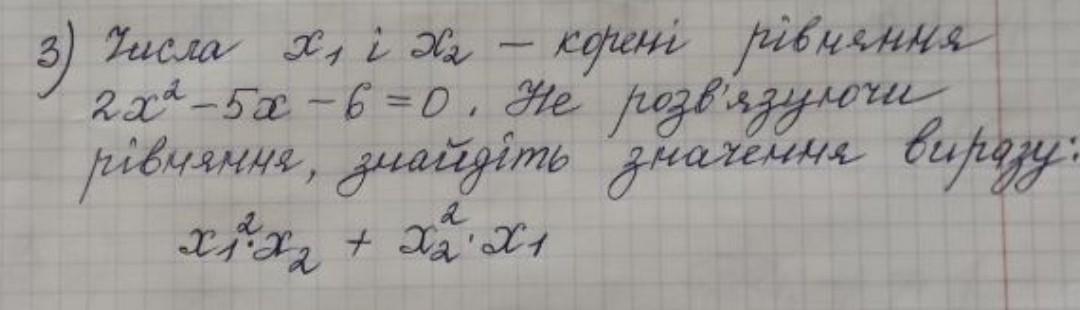 3) Числа x₁ і x₂ – корені рівняння
2x² – 5x – 6 = 0. Не розв'язуючи
рівняння, знайдіть значення виразу:
x₁²·x₂ + x₂²·x₁